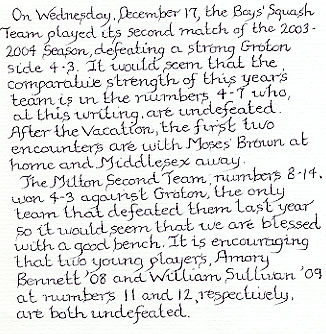 On Wednesday, December 17, the Boys' Squash
Team played its second match of the 2003-
2004 season, defeating a strong Groton
side 4-3. It would seem that the
comparative strength of this year's
team is in the numbers 4-7 who,
at this writing, are undefeated.
After the Vacation, the first two
encounters are with Moses Brown at
home and Middlesex away.
The Milton Second Team, numbers 8-14,
won 4-3 against Groton, the only
team that defeated them last year
so it would seem that we are blessed
with a good bench. It is encouraging
that two young players, Amory
Bennett '08 and William Sullivan '09
at numbers 11 and 12, respectively,
are both undefeated.